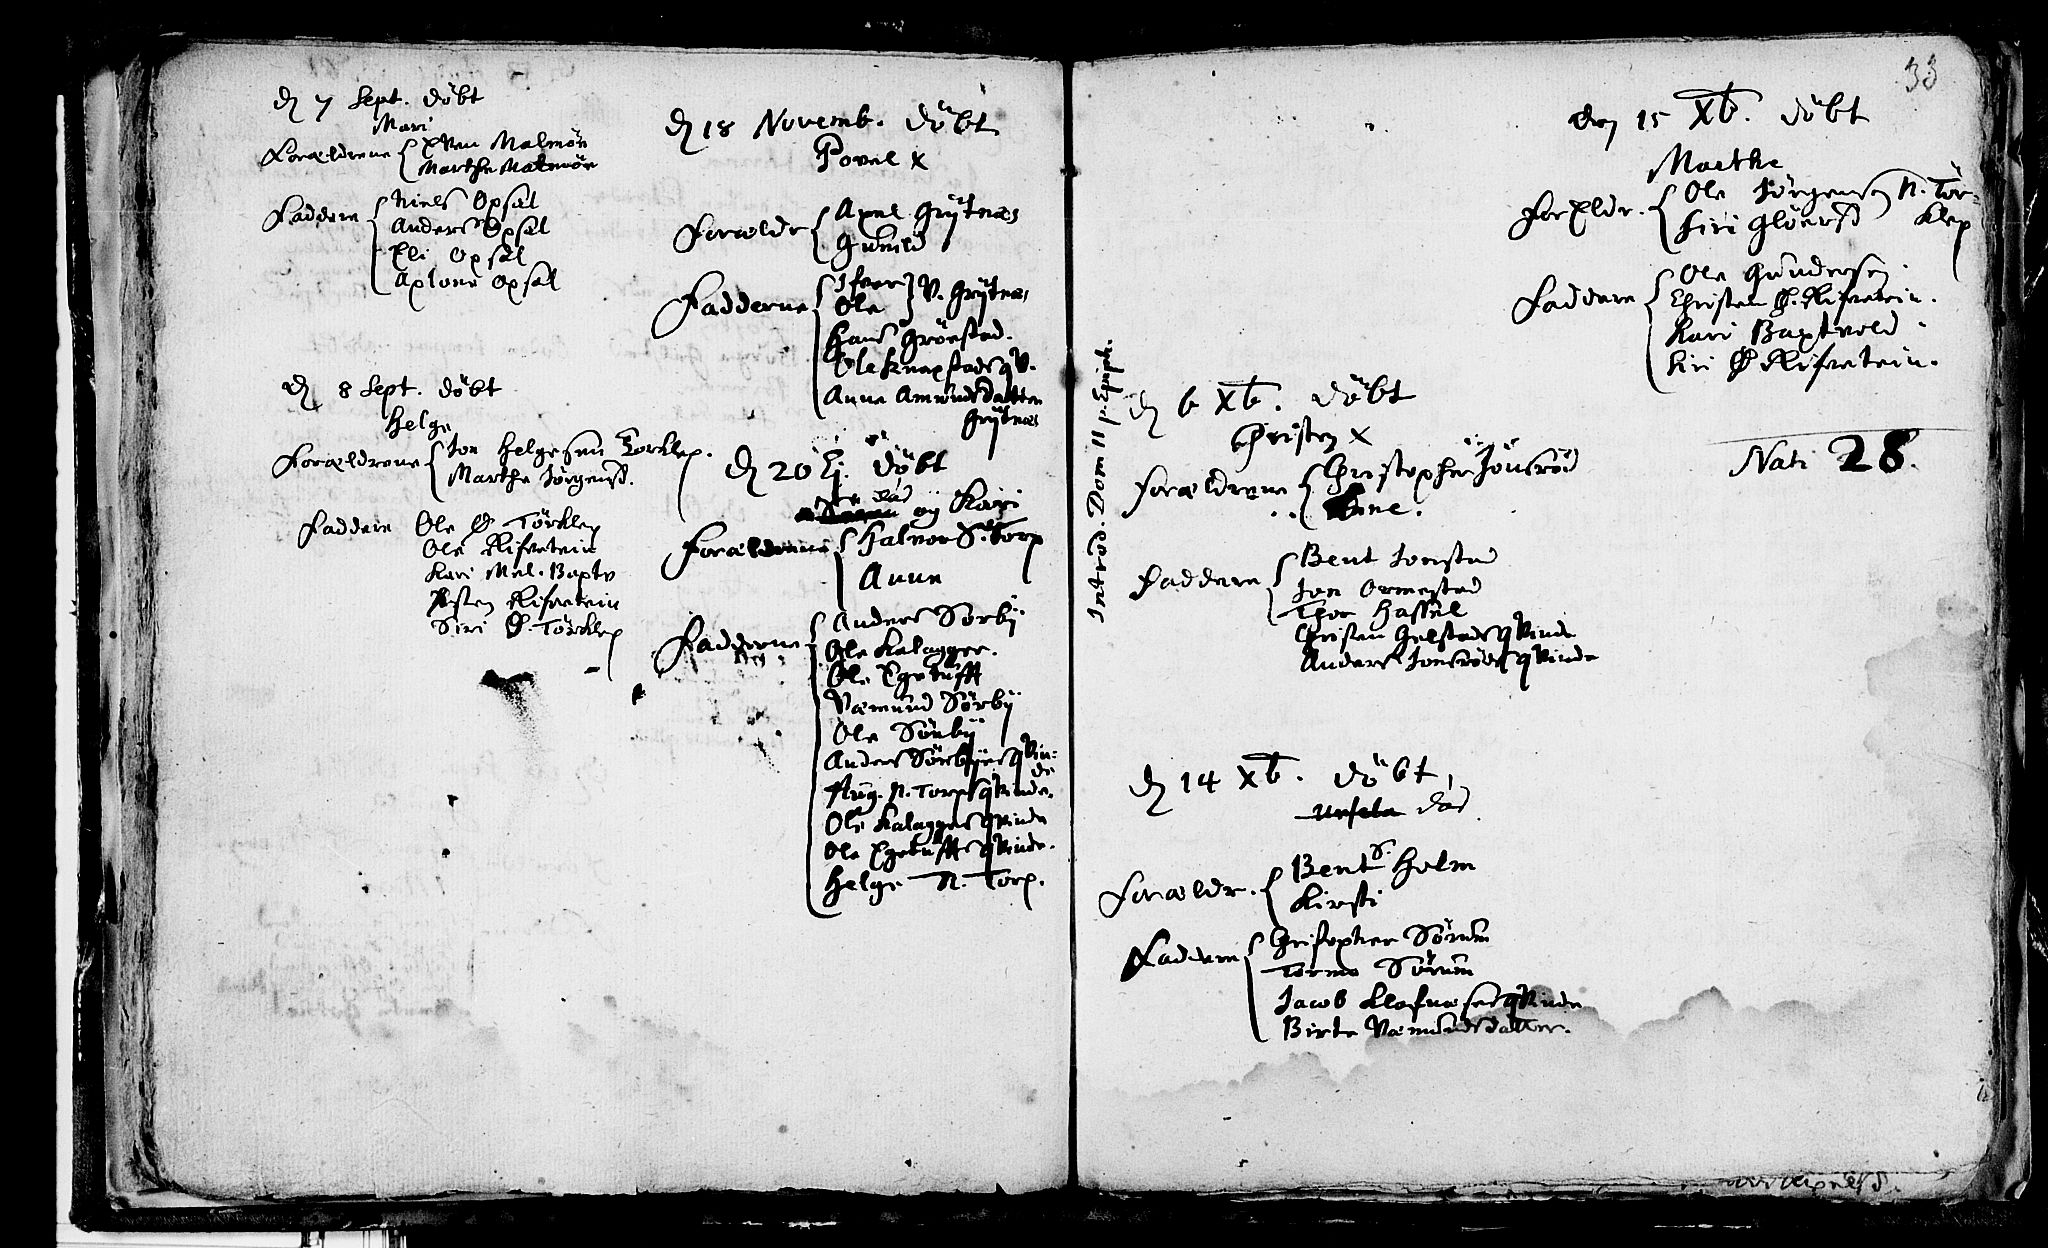 33
D 7 Sept. döbt
Mari
Forældrene Even Malmön
Marthe Malmön
Faddere Niels Opsal
Anders Opsal
Eli Opsal
Axlone Opsal
D 8 Sept. döbt
Helge
Forældrene Jon Helgesen Torklep.
Marthe Jörgensd.
Faddere Ole Ø Törklep
Ole Rifvetein
Kari Mel. Baptv
Rifvetein
Siri Ø. Törklep
D 18 Novemb. döbt
Povel x
Forældr Axel Grÿtnæs
Gunild
Fadderne Ifver
Ole V. Grÿtnæs
Hans Grönstad.
Ole Knapstads qV.
Anne Amundsdatter
Grÿtnæs
D 20 Ej. döbt
död
og Kari
Forældrene Halvor S. Torp
Anne
Fadderne Anders Sörbÿ
Ole Kalagger.
Ole Egetufft
Væmund Sörbÿ
Ole Sörbÿ
Anders Sörbÿes qVin-
de
Aug. N. Torps qVinde.
Ole Kalaggers qVinde
Ole Egetuffts qVinde.
Helge N. Torp.
Introd. Dom II p. Epiph.
D 6 Xb. döbt
Christen x
Forældrene Christopher Jönsröd
Ane.
Faddere Bent Jonstad
Jon Ormestad
Thor Hassel
Christen Gjelstads qVinde
Anders Jonsröds qVinde
D 14 Xb. döbt,
Ursela död
Forældr. Bent S. Holm
Kirsti
Faddere Christopher Sörum
Tormo Sörum
Jacob Klofnæses qVinde
Birte Væmundsdatter.
Den 15 Xb. döbt
Marthe
Forældr. Ole Jörgensen N. Tör-
klep
Siri Glöersd
Faddere Ole Gundersen.
Christen Ø. Rifvetein.
Kari Baptvold.
Siri Ø Rifvetein.
Nati 28.